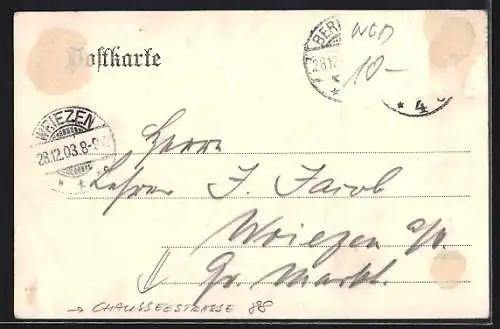 Postkarte
BER
28.12.
4
WGD
10-
WRIEZEN
28.12.03.8-9
Herrn
Lehrer J. Jacob
Wriezen a/O.
Gr. Markt.
→ CHAUSSEESTRASSE 88